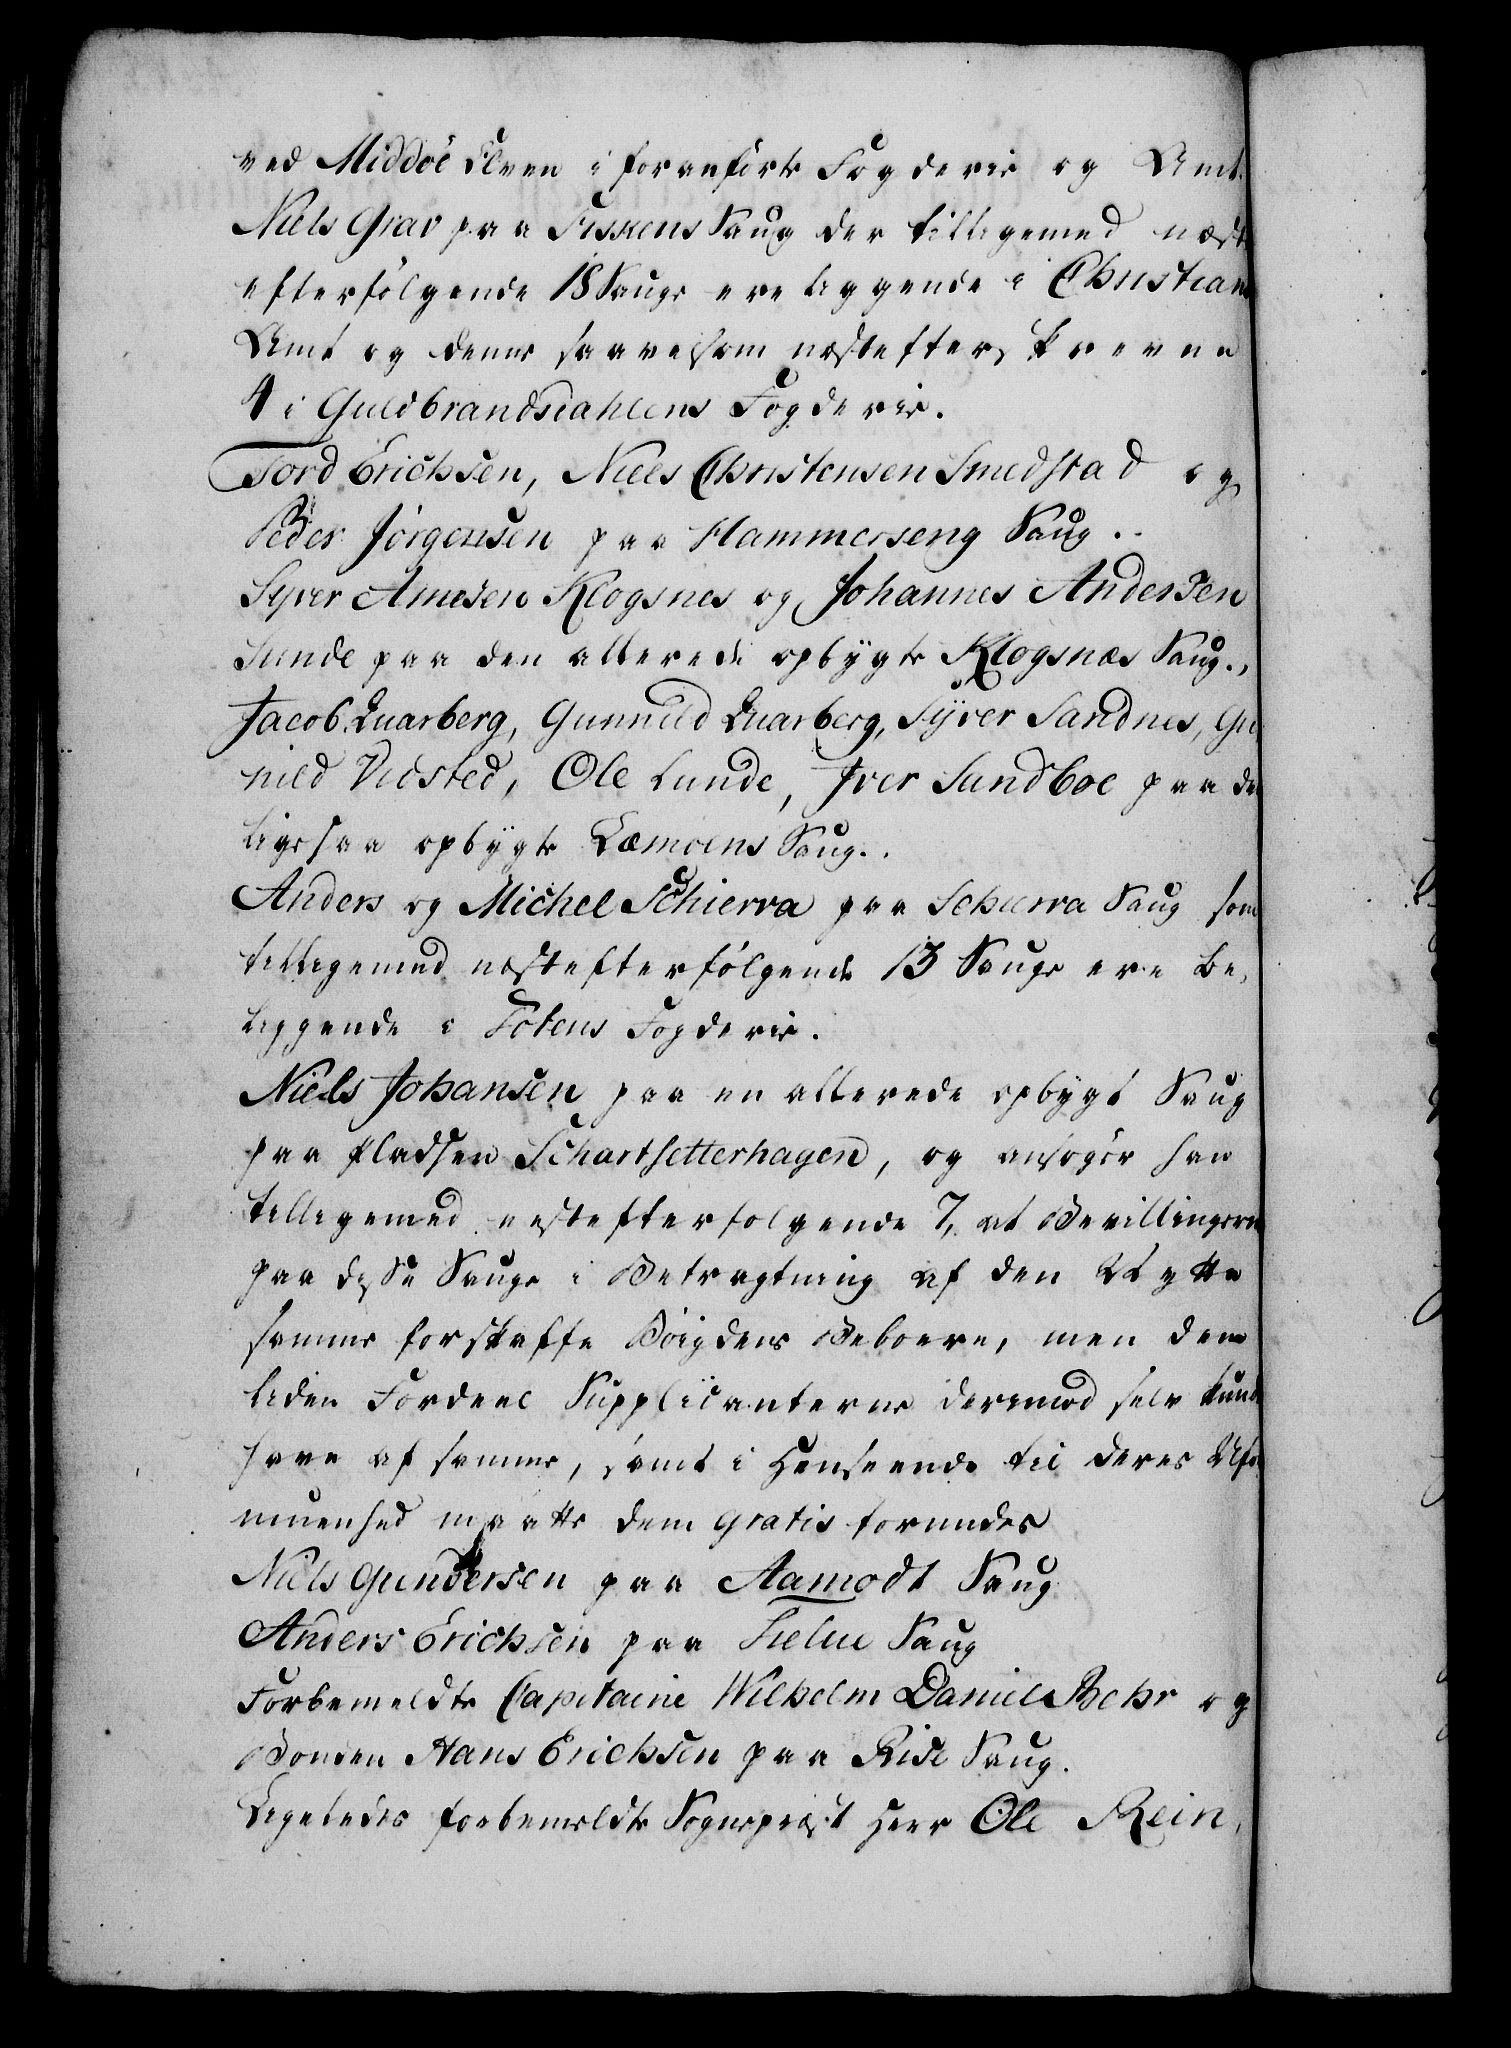 ved Middöe Elven i foranførte Fogderie og Amt.
Niels Grav paa Fiskens Saug der tilligemed næst
efterfølgende 18 Sauge ere liggende i Christians
Amt og denne saavelsom næstefterskrevne
4 i Guldbrandsdahlens Fogderie.
Tord Erichsen, Niels Christensen Smedstad og
Peder Jörgensen paa Hammerseng Saug..
Syver Amesen Klogsnes og Johannes Andersen
Sunde paa den allerede opbygte Klogsnæs Saug.,
Jacob Quarberg, Gunnild Quarberg, Syver Sandnes, Gu
nild Vidsted, Ole Lunde, Iver Sundboe paa de
ligesaa opbygte Læmoens Saug..
Anders og Michel Schierra paa Schierra Saug som
tilligemed næstefterfølgende 13 Sauge ere be-
liggende i Totens Fogderie.
Niels Johansen paa en allerede opbygt Saug
paa Pladsen Schartsetterhagen, og ansøger han
tilligemed nestefterfolgende 7, at Bevillingerne
paa disse Sauge i Betragtning af den Nytte
samme forskaffe Bøigdens Beboere, men den
liden Fordeel Supplicanterne derimod selv kunde
have af samme, samt i Henseende til deres Ufor
muenhed maatte dem gratis forundes
Niels Gundersen paa Aamodt Saug
Anders Erichsen paa Saug
Forbemeldte Capitaine Wilhelm Daniel Behr og
Bonden Hans Erichsen paa Rise Saug.
Ligeledes forbemeldte Sognepræst Herr Ole Rein,